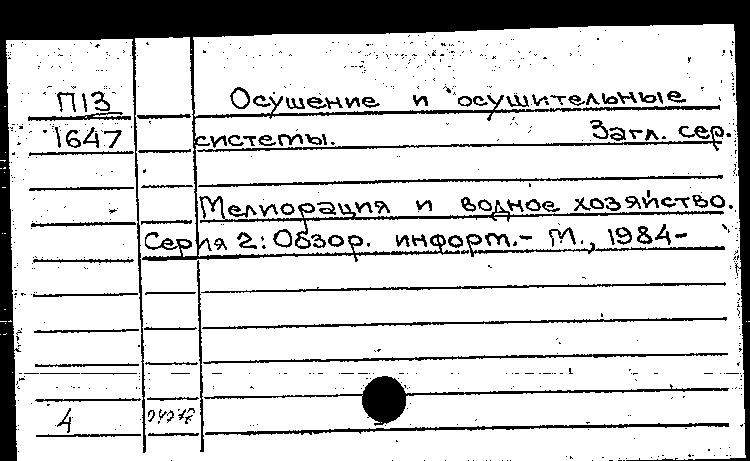 П13 Осушение и осушительные
1647 системы. Загл. сер.
Мелиорация и водное хозяйство.
Серия 2: Обзор. информ.- М., 1984-
4